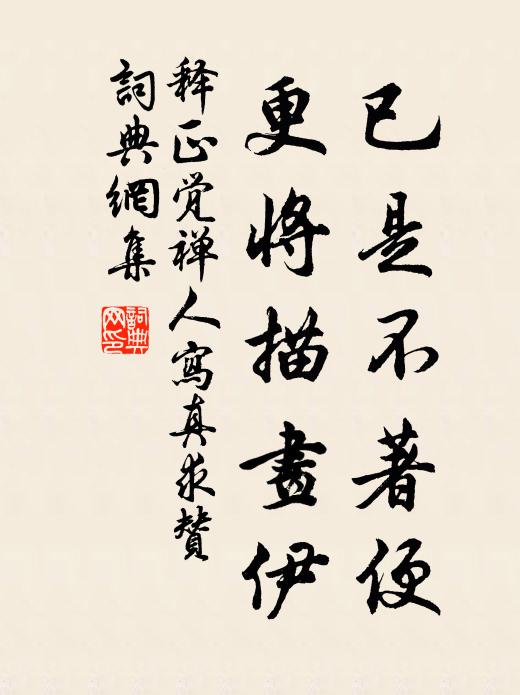 已是不著便
更将描畫伊
释正觉禅人寫真求贊
詞典網集
詞典
网印